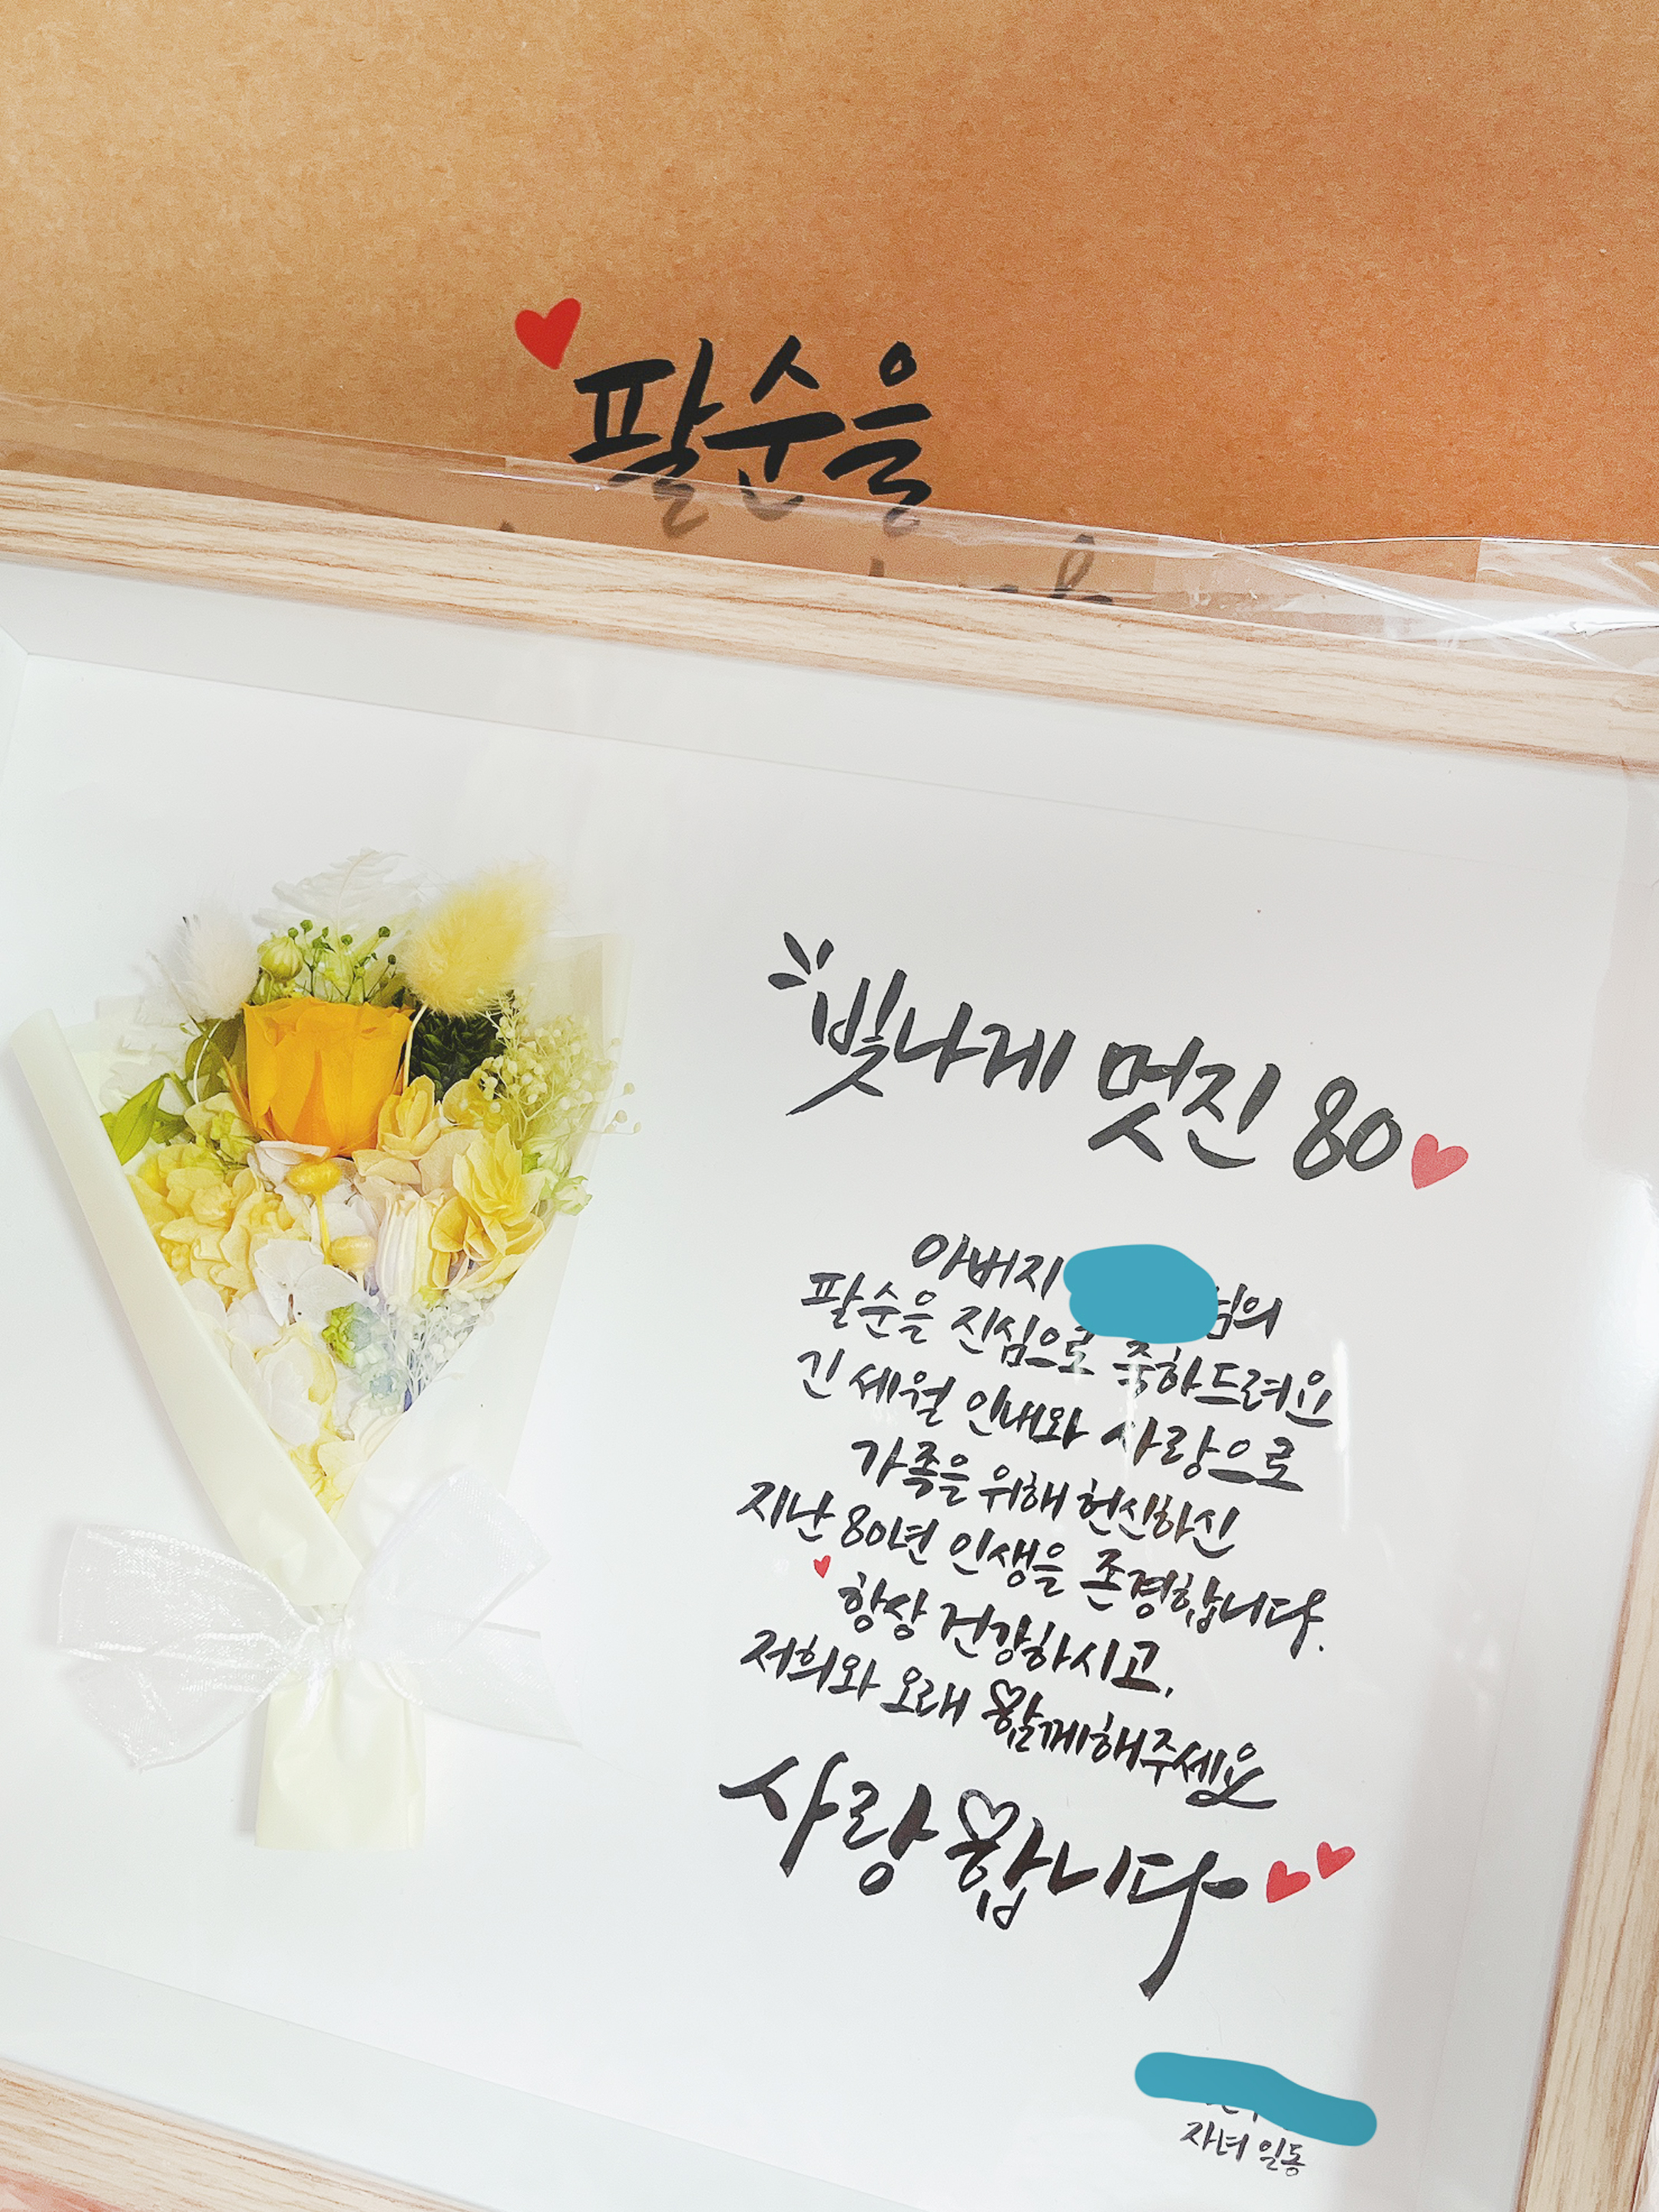 팔순을
빛나게 멋진 80
아버지 님의
팔순을 진심으로 축하드려요
긴 세월 인내와 사랑으로
가족을 위해 헌신하신
지난 80년 인생을 존경합니다.
항상 건강하시고,
저희와 오래 함께해주세요
사랑합니다
자녀 일동